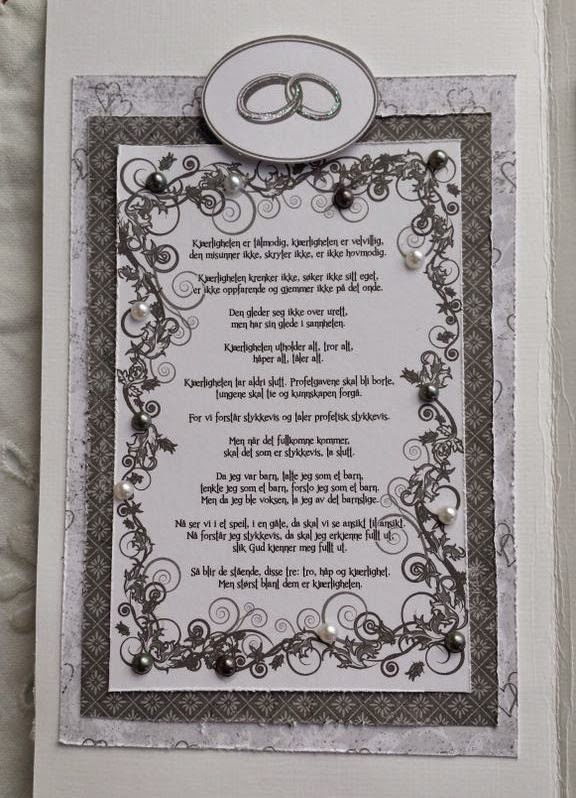 Kjærligheten er tålmodig, kjærligheten er velvillig,
den misunner ikke, skryter ikke, er ikke hovmodig.
Kjærligheten krenker ikke, søker ikke sitt eget,
er ikke oppfarende og gjemmer ikke på det onde.
Den gleder seg ikke over urett,
men har sin glede i sannheten.
Kjærligheten utholder alt, tror alt,
håper alt, tåler alt.
Kjærligheten tar aldri slutt. Profetgavene skal bli borte,
tungene skal tie og kunnskapen forgå.
For vi forstår stykkevis og taler profetisk stykkevis.
Men når det fullkomne kommer,
skal det som er stykkevis, ta slutt.
Da jeg var barn, talte jeg som et barn,
tenkte jeg som et barn, forsto jeg som et barn.
Men da jeg ble voksen, la jeg av det barnslige.
Nå ser vi i et speil, i en gåte, da skal vi se ansikt til ansikt.
Nå forstår jeg stykkevis, da skal jeg erkjenne fullt ut,
slik Gud kjenner meg fullt ut.
Så blir de stående, disse tre: tro, håp og kjærlighet.
Men størst blant dem er kjærligheten.